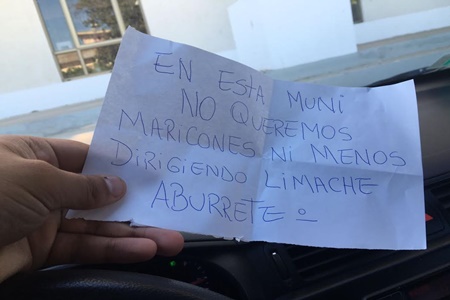 EN ESTA MUNI
NO QUEREMOS
MARICONES NI MENOS
DIRIGIENDO LIMACHE
ABURRETE º